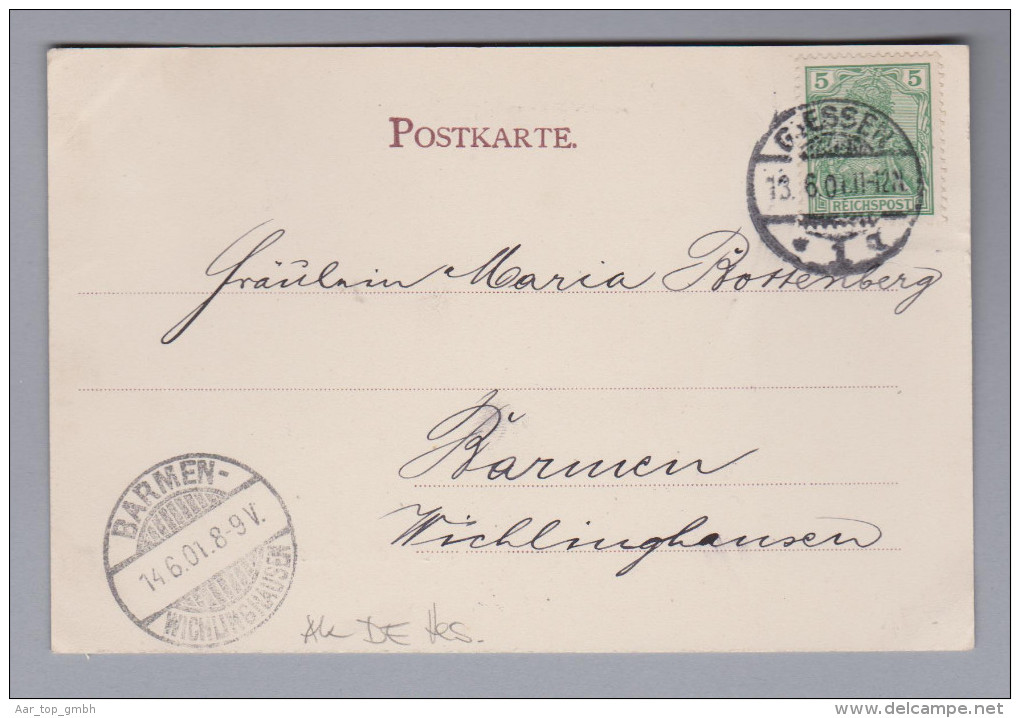 POSTKARTE.
5 5
REICHSPOST
GIESSEN
13.6.01.11-12N.
* 1
Fräulein Maria Bottenberg
Barmen
Wichlinghausen
BARMEN-
14.6.01.8-9V.
WICHLINGHAUSEN
AK DE Hes.
Aar_top_gmbh
www.delcampe.net